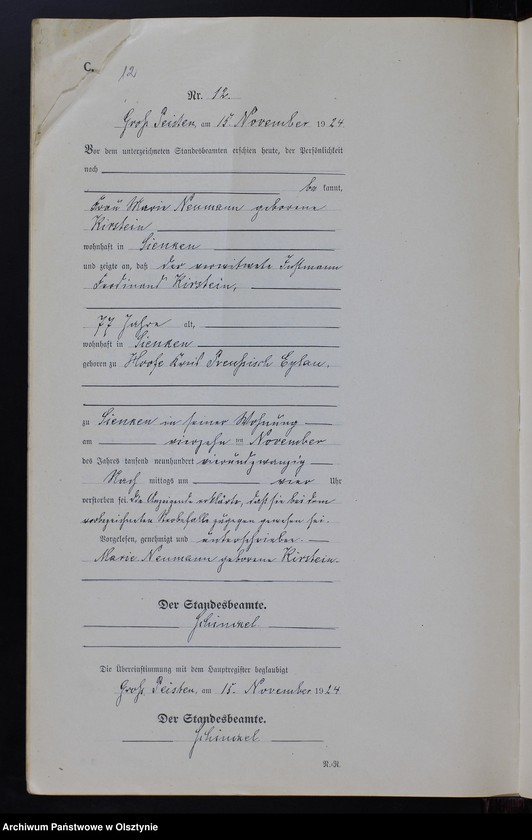 C.
12
Nr. 12.
Groß Peisten, am 15. November 1924.
Vor dem unterzeichneten Standesbeamten erschien heute, der Persönlichkeit
nach
be kannt,
Frau Marie Neumann geborene
Kirstein
wohnhaft in Sienken
und zeigte an, daß der verwitwete Instmann
Ferdinand Kirstein,
77 Jahre alt,
wohnhaft in Sienken
geboren zu Hoofe Kreis Preußisch Eylau,
zu Sienken in seiner Wohnung
am vierzehn ten November
des Jahres tausend neunhundert vierundzwanzig
Nach mittags um vier Uhr
verstorben sei. Die Anzeigende erklärte, daß sie bei dem
vorbezeichneten Sterbefalle zugegen gewesen sei.
Vorgelesen, genehmigt und unterschrieben.
Marie Neumann geborene Kirstein.
Der Standesbeamte.
Schinckel
Die Übereinstimmung mit dem Hauptregister beglaubigt
Groß Peisten, am 15. November 1924.
Der Standesbeamte.
Schinckel
N.-R.
Archiwum Państwowe w Olsztynie